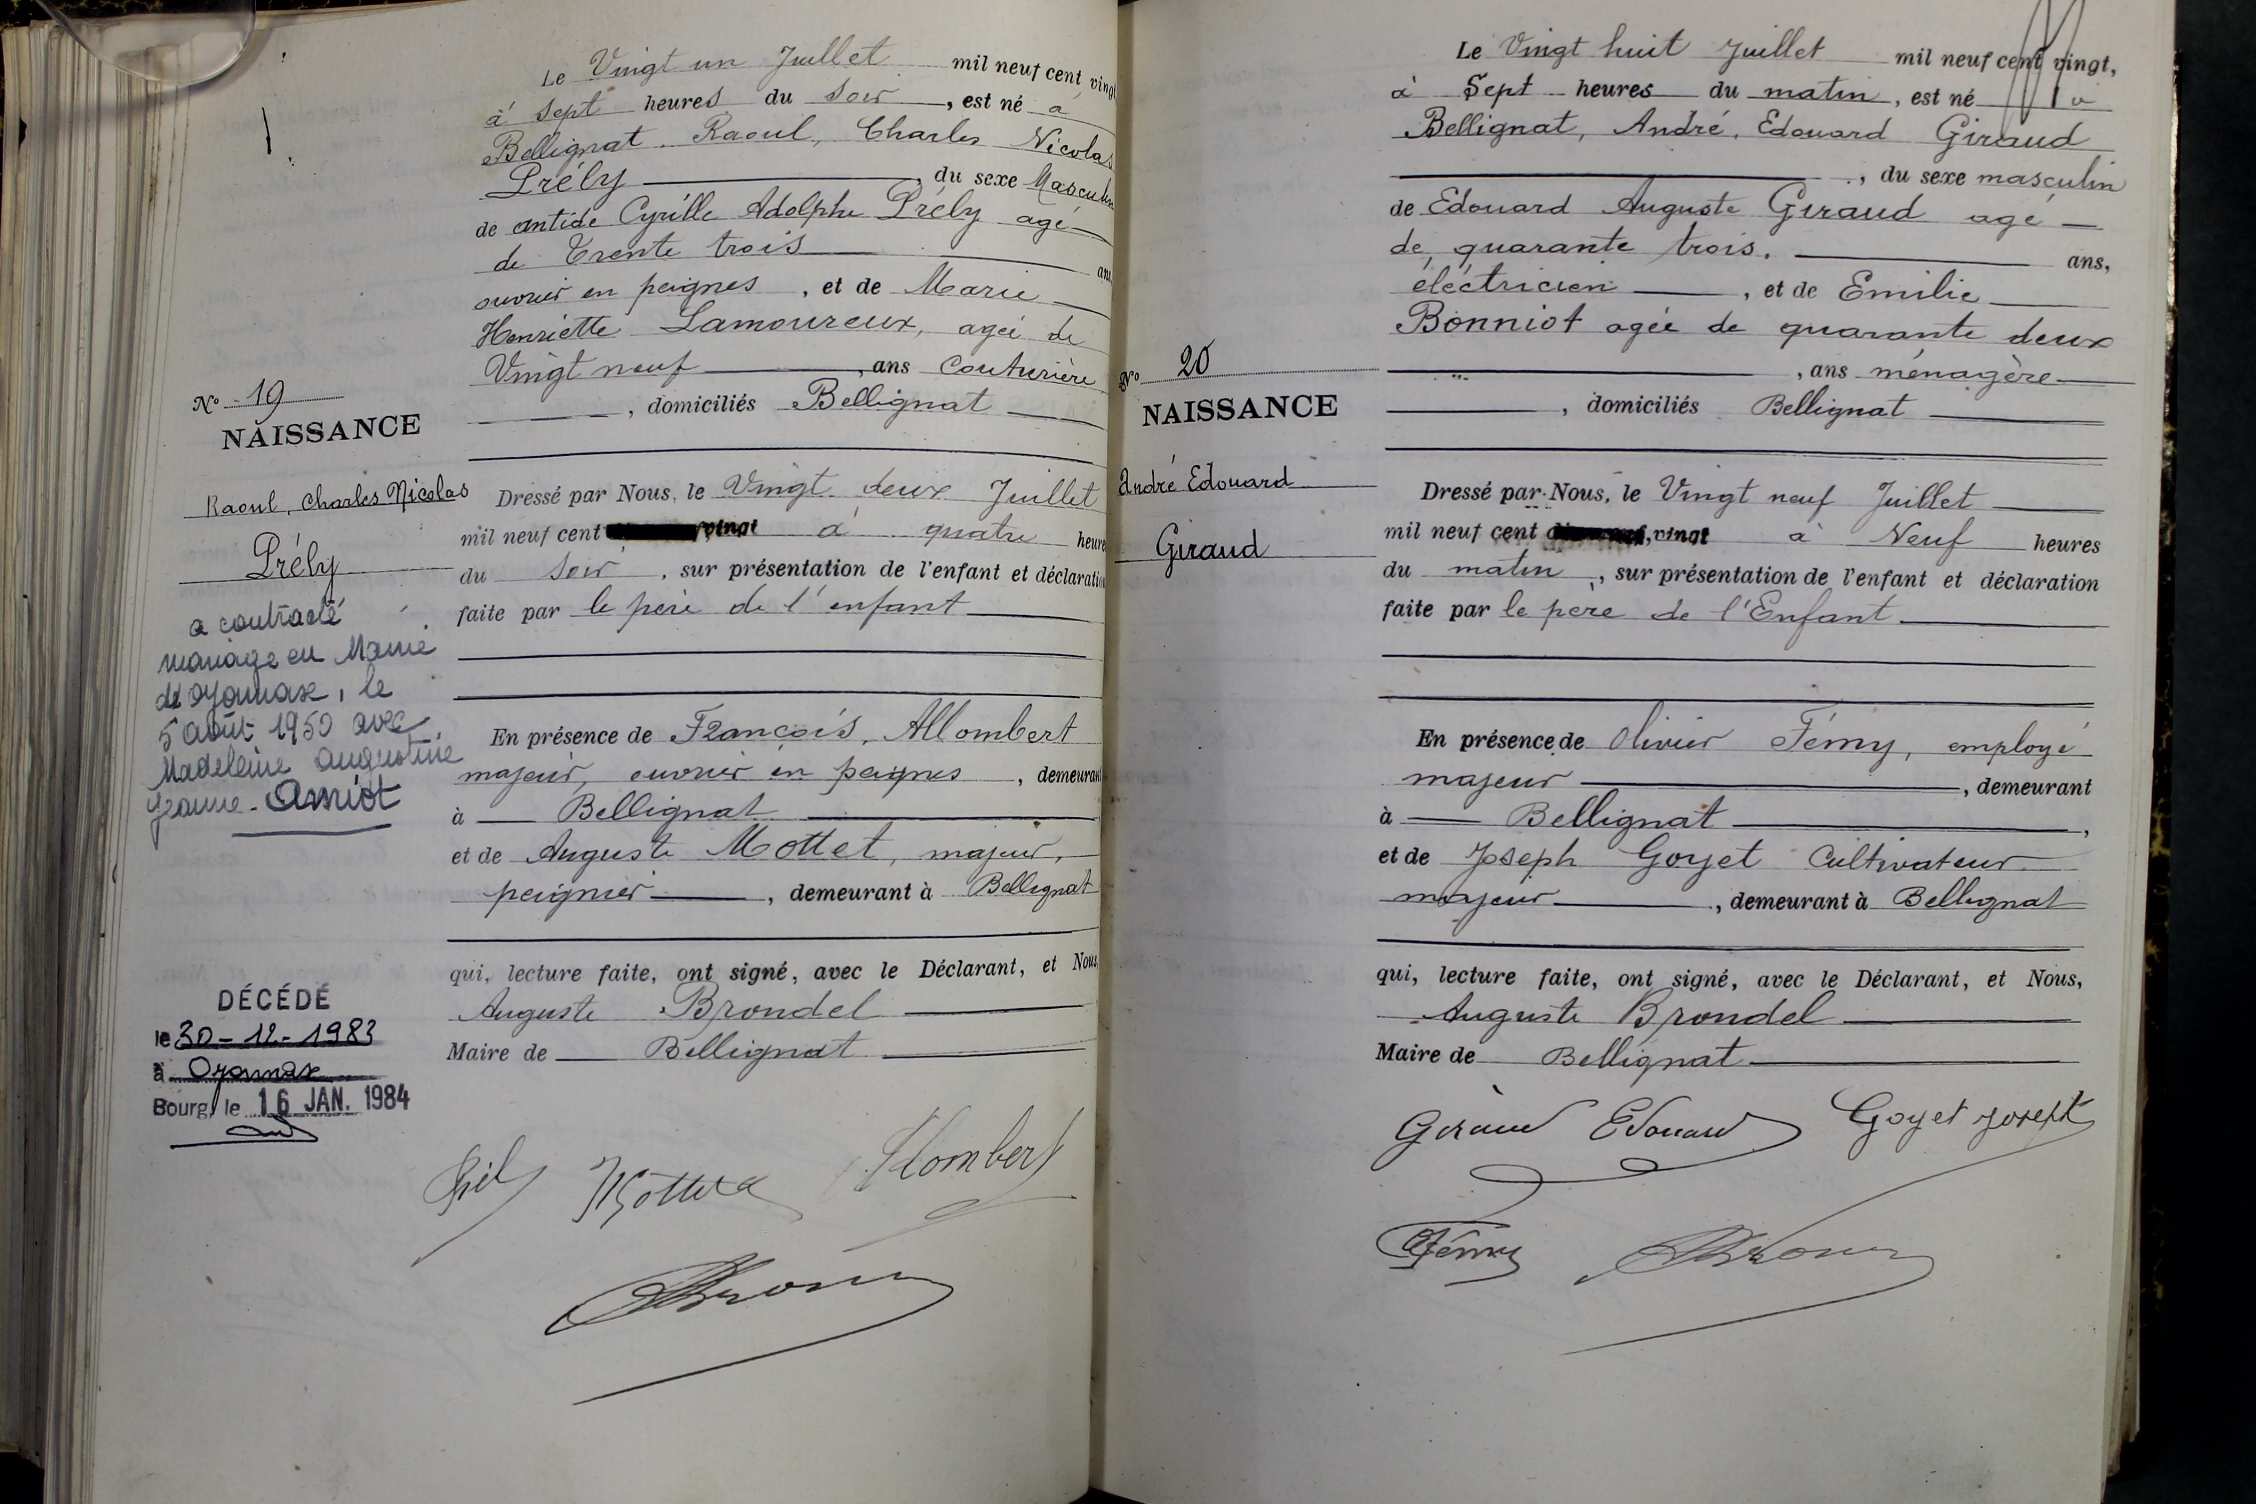 Le Vingt un Juillet mil neuf cent vingt
à sept heures du soir, est né à
Bellignat Raoul, Charles Nicolas
Prély, du sexe Masculin
de antide Cyrille Adolphe Prély agé
de Trente trois ans
ouvrier en peignes, et de Marie
Henriette Lamoureux, agée de
Vingt neuf, ans couturière
, domiciliés Bellignat
N° 19
NAISSANCE
Raoul, Charles Nicolas
Prély
a contracté
mariage en Mairie
d'oyonnax, le
5 août 1950 avec
Madeleine Augustine
Jeanne Amiot
DÉCÉDÉ
le 30-12-1983
à Oyonnax
Bourg, le 16 JAN. 1984
Dressé par Nous, le Vingt deux Juillet
mil neuf cent vingt à quatre heures
du soir, sur présentation de l'enfant et déclaration
faite par le père de l'enfant
En présence de François, Allombert
majeur, ouvrier en peignes, demeurant
à Bellignat
et de Auguste Mottet, majeur,
peignier, demeurant à Bellignat
qui, lecture faite, ont signé, avec le Déclarant, et Nous,
Auguste Brondel
Maire de Bellignat
Allombert
Le Vingt huit Juillet mil neuf cent vingt,
à Sept heures du matin, est né à
Bellignat, André, Edouard Giraud
, du sexe masculin
de Edouard Auguste Giraud agé
de quarante trois. ans,
électricien, et de Emilie
Bonniot agée de quarante deux
, ans ménagère
, domiciliés Bellignat
N° 20
NAISSANCE
André Edouard
Giraud
Dressé par Nous, le Vingt neuf Juillet
mil neuf cent vingt à Neuf heures
du matin, sur présentation de l'enfant et déclaration
faite par le père de l'Enfant
En présence de Olivier Fémy, employé
majeur, demeurant
à Bellignat,
et de Joseph Goyet Cultivateur
majeur, demeurant à Bellignat
qui, lecture faite, ont signé, avec le Déclarant, et Nous,
Auguste Brondel
Maire de Bellignat
Giraud Edouard Goyet Joseph
Fémy